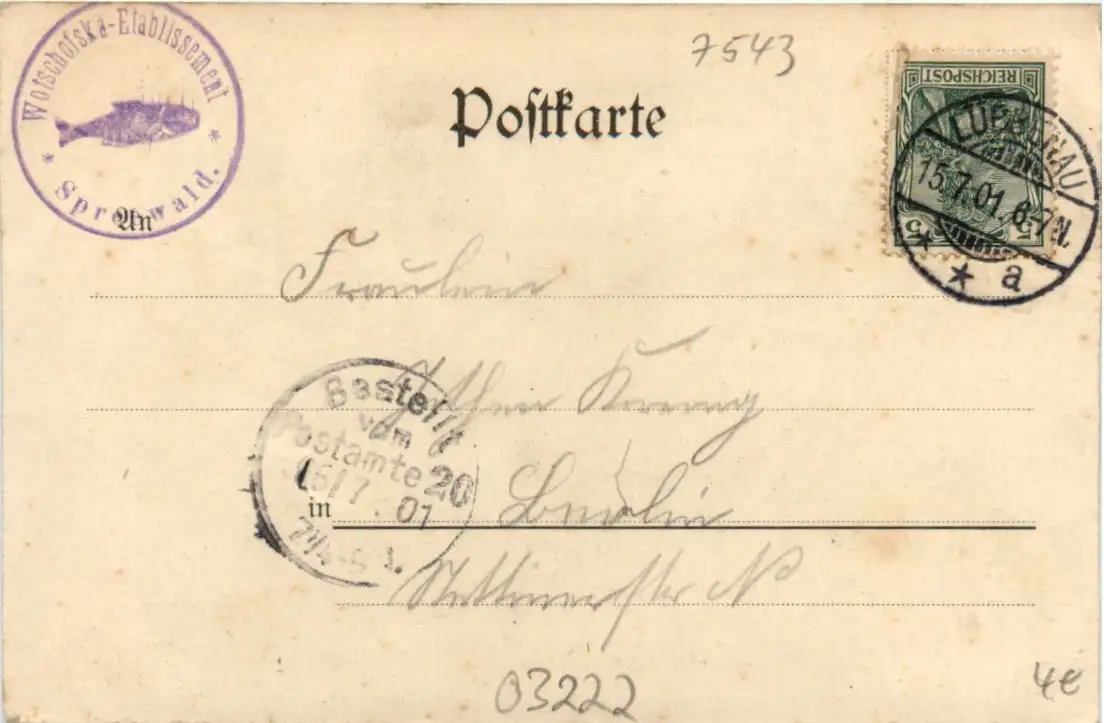 Wotschofska-Etablissement
* Spreewald. *
7543
Postkarte
REICHSPOST
5 5
LÜBBENAU
15.7.01. 6-7N.
* * a
An
Fräulein
Bestellt
vom
Postamte 20
16/7.01
in Berlin
Stettinerstr N
03222
4€